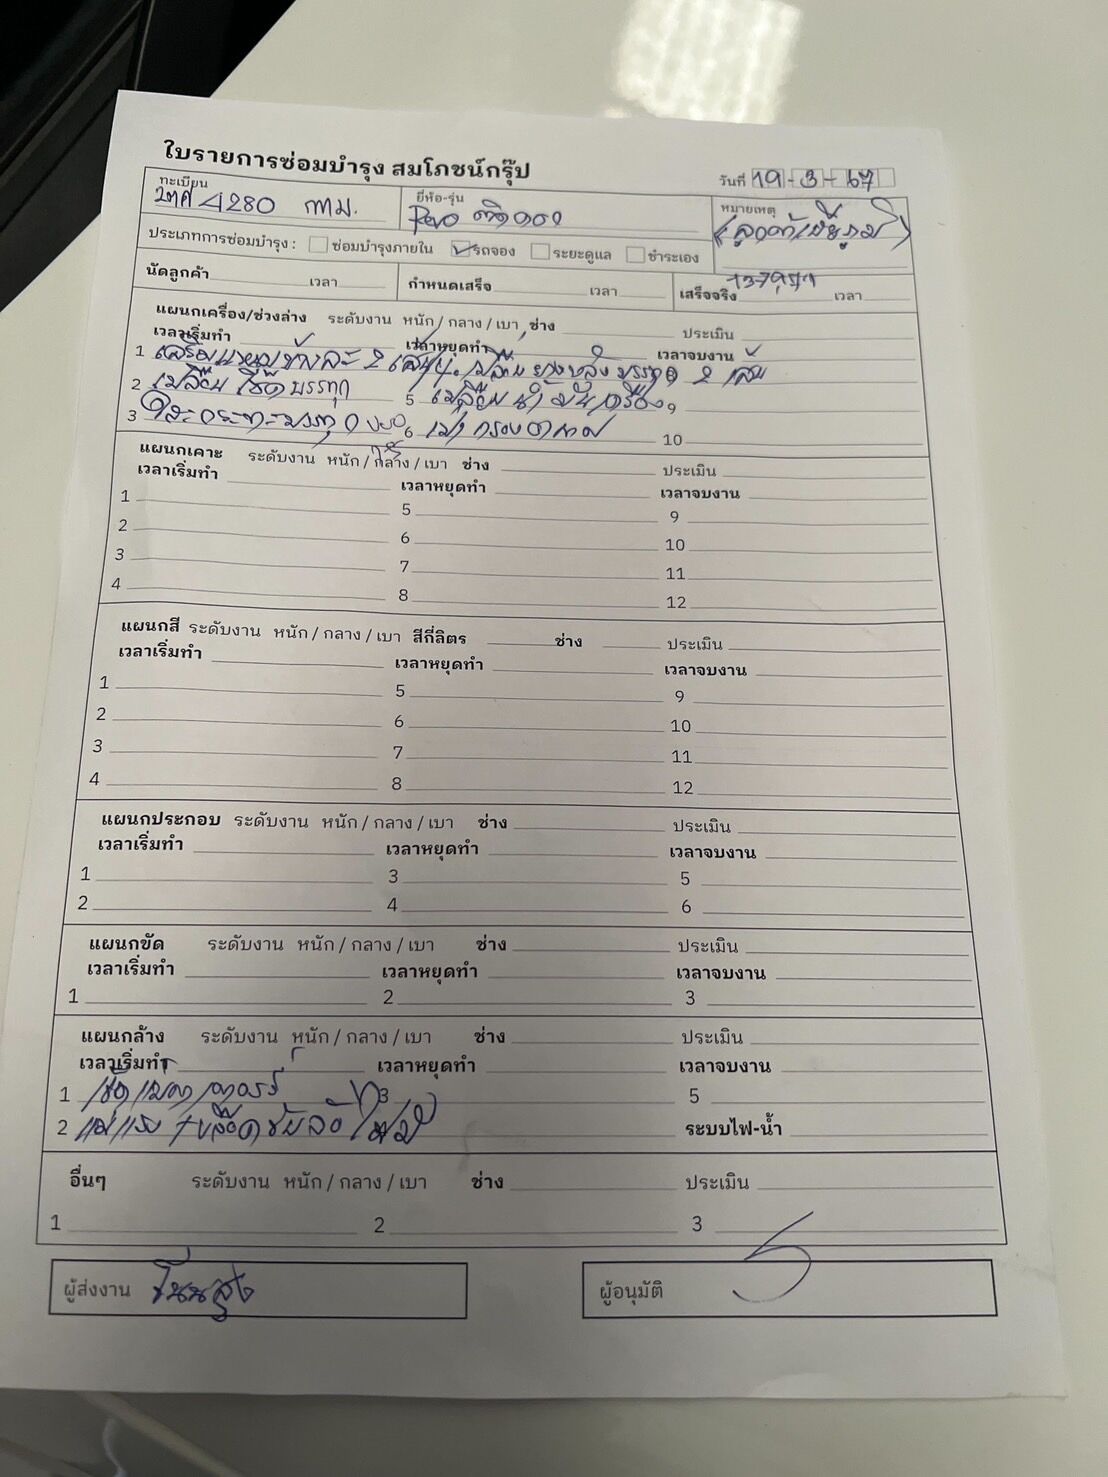 ใบรายการซ่อมบำรุง สมโภชน์กรุ๊ป
วันที่ 19-3-67
ทะเบียน 2ฒศ 4280 กทม.
ยี่ห้อ-รุ่น Revo
หมายเหตุ (ลูกค้า
ประเภทการซ่อมบำรุง : ซ่อมบำรุงภายใน รถจอง ระยะดูแล ชำระเอง
นัดลูกค้า เวลา กำหนดเสร็จ เวลา เสร็จจริง เวลา
แผนกเครื่อง/ช่วงล่าง ระดับงาน หนัก / กลาง / เบา ช่าง ประเมิน
เวลาเริ่มทำ เวลาหยุดทำ เวลาจบงาน
1 เสริมแหนบข้างละ 2 เส้น 4. เปลี่ยนยางหลังบรรทุก 2 เส้น
2 เปลี่ยนโช๊คบรรทุก 5 เปลี่ยนน้ำมันเครื่อง 9
3 6 เป่ากรองอากาศ 10
แผนกเคาะ ระดับงาน หนัก / กลาง / เบา ช่าง ประเมิน
เวลาเริ่มทำ เวลาหยุดทำ เวลาจบงาน
1 5 9
2 6 10
3 7 11
4 8 12
แผนกสี ระดับงาน หนัก / กลาง / เบา สีกี่ลิตร ช่าง ประเมิน
เวลาเริ่มทำ เวลาหยุดทำ เวลาจบงาน
1 5 9
2 6 10
3 7 11
4 8 12
แผนกประกอบ ระดับงาน หนัก / กลาง / เบา ช่าง ประเมิน
เวลาเริ่มทำ เวลาหยุดทำ เวลาจบงาน
1 3 5
2 4 6
แผนกขัด ระดับงาน หนัก / กลาง / เบา ช่าง ประเมิน
เวลาเริ่มทำ เวลาหยุดทำ เวลาจบงาน
1 2 3
แผนกล้าง ระดับงาน หนัก / กลาง / เบา ช่าง ประเมิน
เวลาเริ่มทำ เวลาหยุดทำ เวลาจบงาน
1 3 5
2 แม่แรง ระบบไฟ-น้ำ
อื่นๆ ระดับงาน หนัก / กลาง / เบา ช่าง ประเมิน
1 2 3
ผู้ส่งงาน
ผู้อนุมัติ